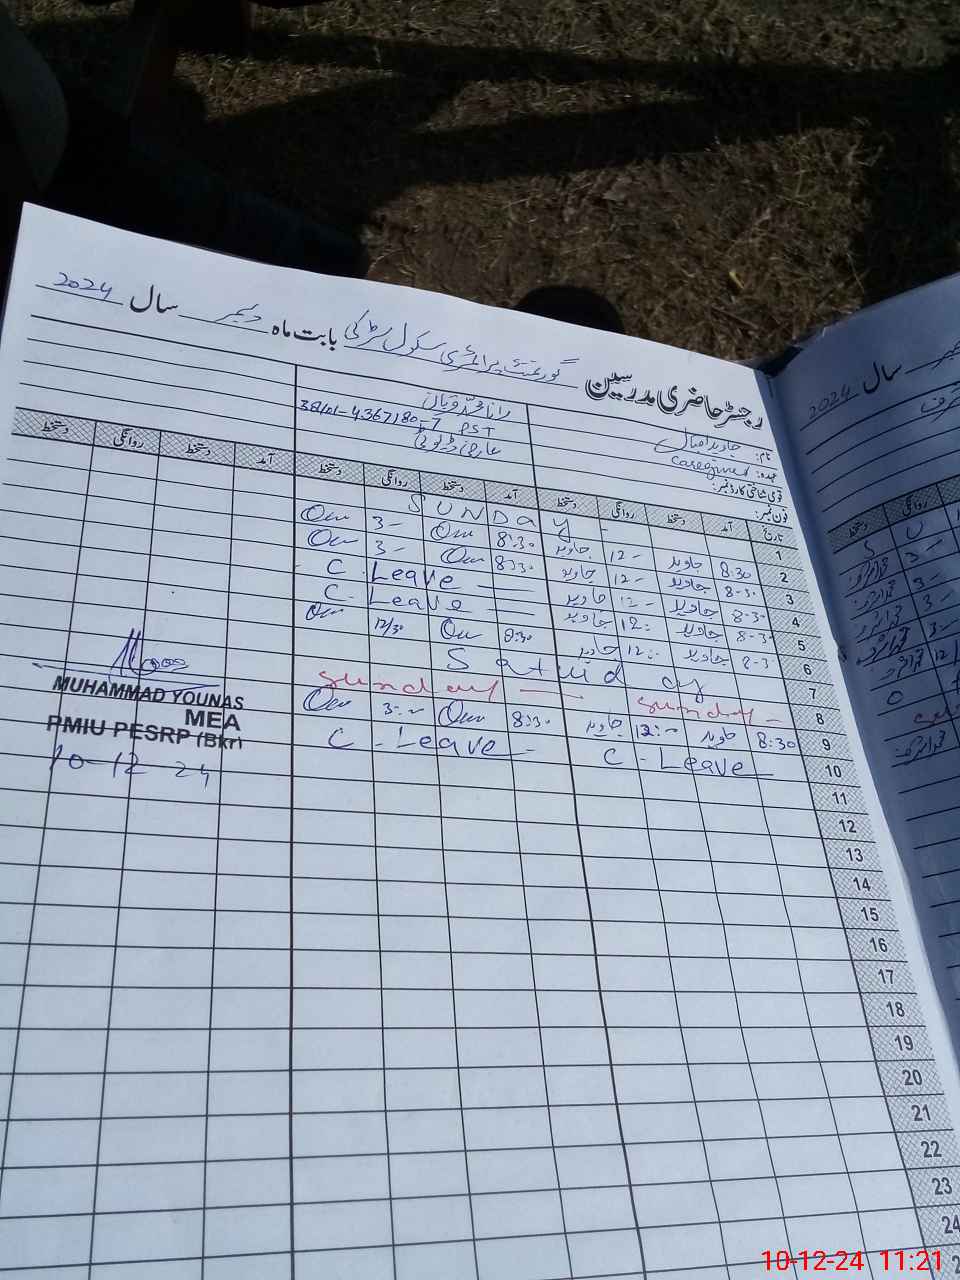 رجسٹر حاضری مدرسین گورنمنٹ پرائمری سکول بابت ماہ دسمبر سال 2024
نام: جاوید اقبال
عہدہ: Caregiver
قومی شناختی کارڈ نمبر:
فون نمبر:
رانا محمد
38101-4367180-7 PST
عارضی ڈیوٹی
تاریخ آمد دستخط روانگی دستخط آمد دستخط روانگی دستخط آمد دستخط روانگی دستخط
1 Sunday -
2 8:30 جاوید 12- جاوید 8:30 3-
3 8-30 جاوید 12- جاوید 8:30 3-
4 8-30 جاوید 12- جاوید C. Leave
5 8-30 جاوید 12: جاوید C. Leave
6 8-30 جاوید 12:- جاوید 8:30 12/30
7 Saturday
8 Sunday - Sunday -
9 8:30 جاوید 12:- جاوید 8:30 3:-
10 C - Leave C - Leave -
11
12
13
14
15
16
17
18
19
20
21
22
23
24
MUHAMMAD YOUNAS
MEA
PMIU PESRP (Bkr)
10-12 24
سال 2024
10-12-24 11:21